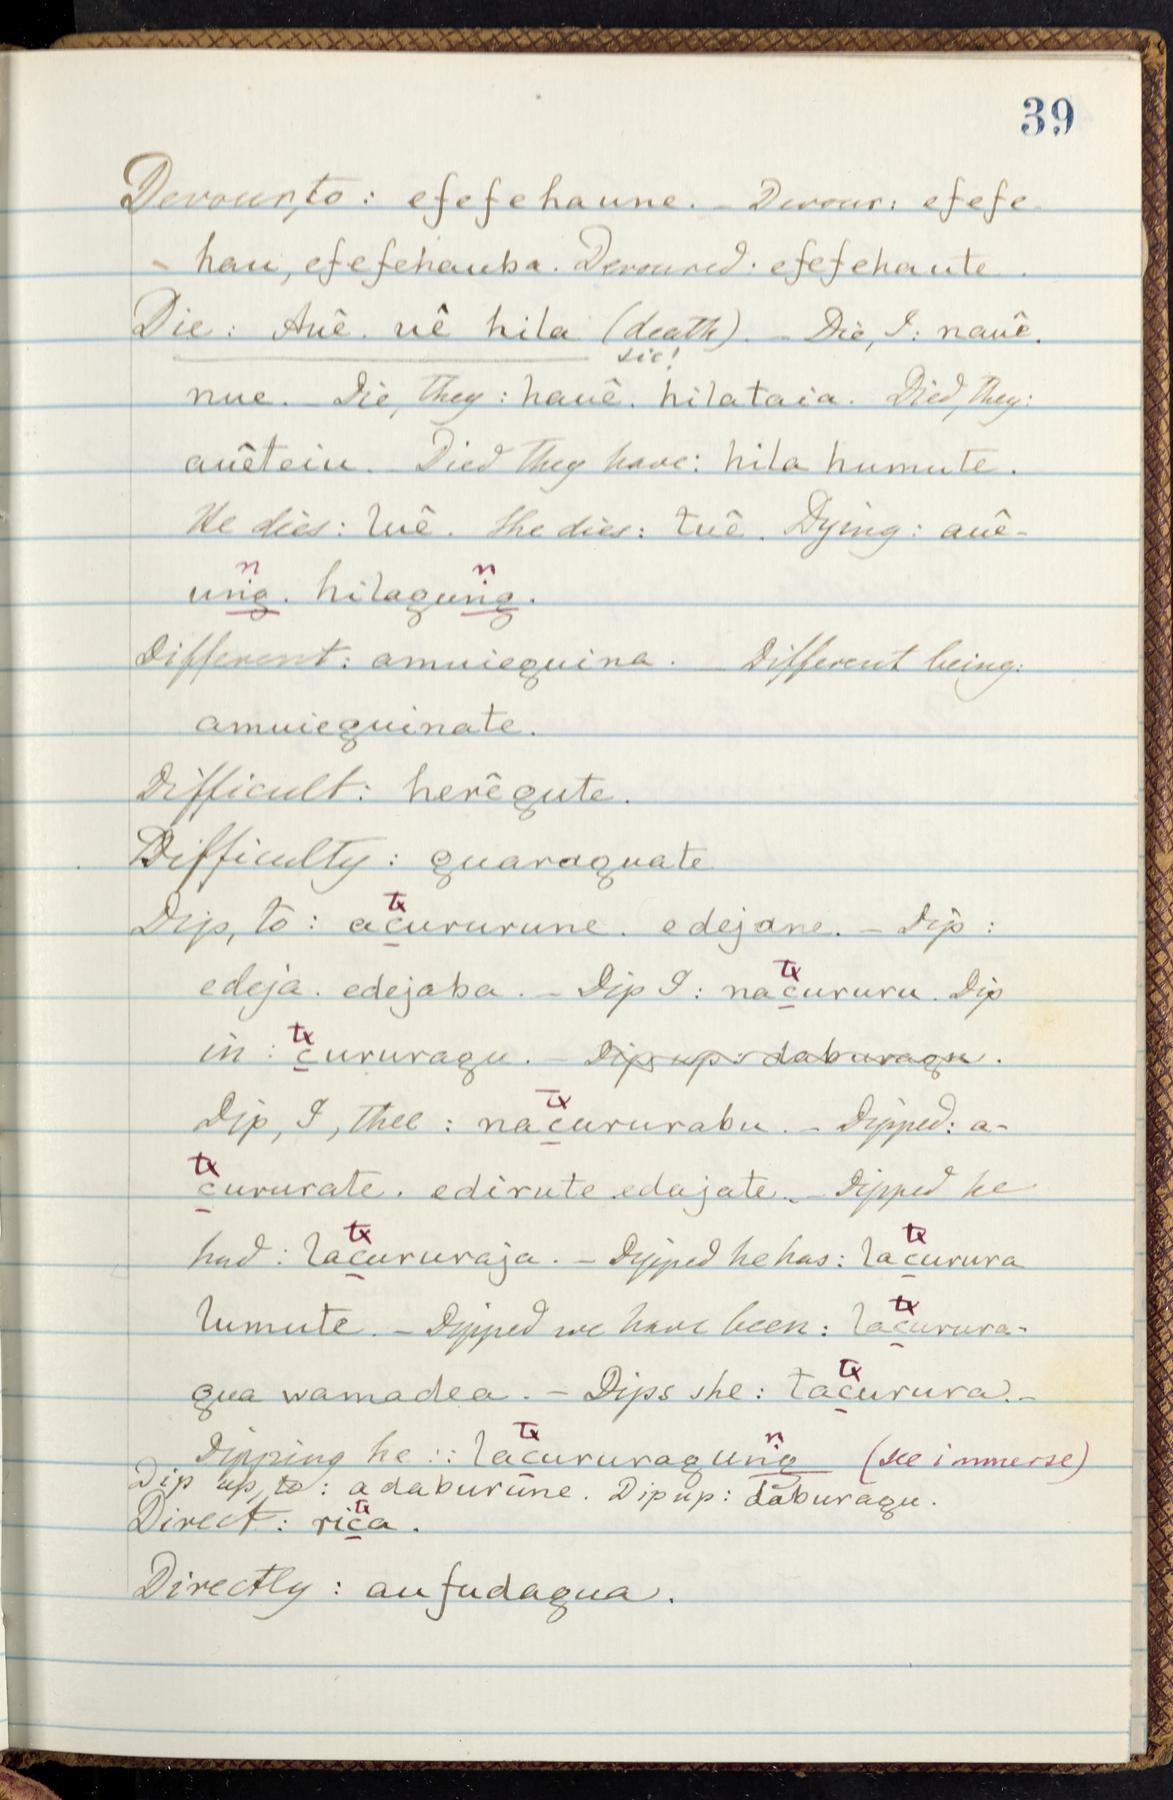 39
Devour, to: efefehaune. – Devour: efefe-
hau, efefehauba. Devoured: efefehaute.
Die: Auê. uê hila (death). – Die, I: nauê.
sic!
nue. – Die, they: hauê. hilataia. Died, they:
auêteiu. – Died they have: hila humute.
He dies: luê. She dies: tuê. Dying: auê-
n n
uṅg. hilaguṅg.
Different: amuieguina. – Different being:
amuieguinate.
Difficult: herêgute.
Difficulty: guaraguate
tx
Dip, to: acururune. edejane. – Dip:
tx
edeja. edejaba. – Dip I: nacururu. Dip
tx
in: cururagu. – Dip up: daburagu.
tx
Dip, I, thee: nacururabu. – Dipped: a-
tx
cururate. edirute edajate. – Dipped he
tx tx
had: lacururaja. – Dipped he has: lacurura
tx
lumute. – Dipped we have been: lacurura-
tx
gua wamadea. – Dips she: tacurura. –
tx n
Dipping he :: lacururaguṅg (see immerse)
Dip up, to: adaburune. Dip up: daburagu.
tx
Direct: rica.
Directly: aufudagua.